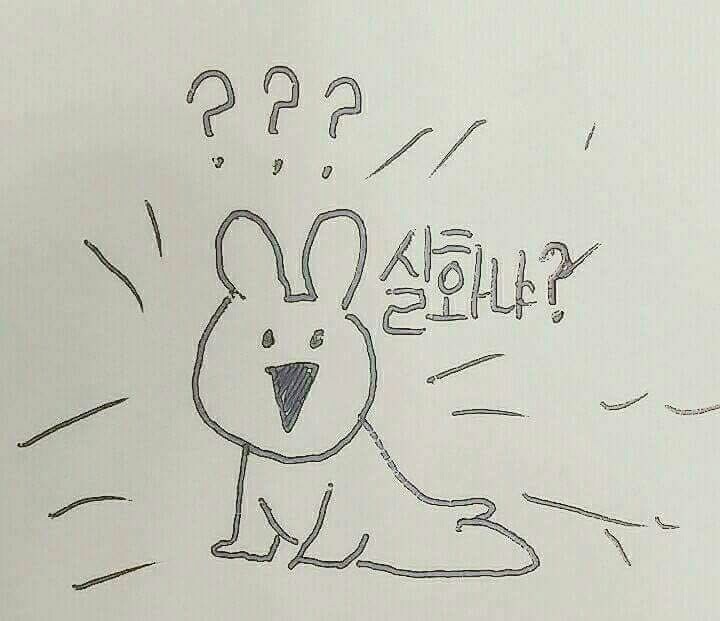 ???
실화냐?